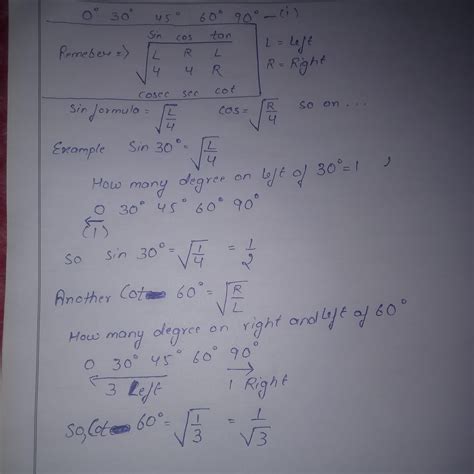 0° 30° 45° 60° 90° —(i)
Sin cos tan
Remeber => √ L R L L = Left
4 4 R R = Right
cosec sec cot
Sin formula = √L/4 cos = √R/4 so on ...
Example Sin 30° = √L/4
How many degree on left of 30° = 1 ,
0 30° 45° 60° 90°
(1)
So sin 30° = √1/4 = 1/2
Another Cot 60° = √R/L
How many degree on right and left of 60°
0 30° 45° 60° 90°
3 Left 1 Right
So, Cot 60° = √1/3 = 1/√3